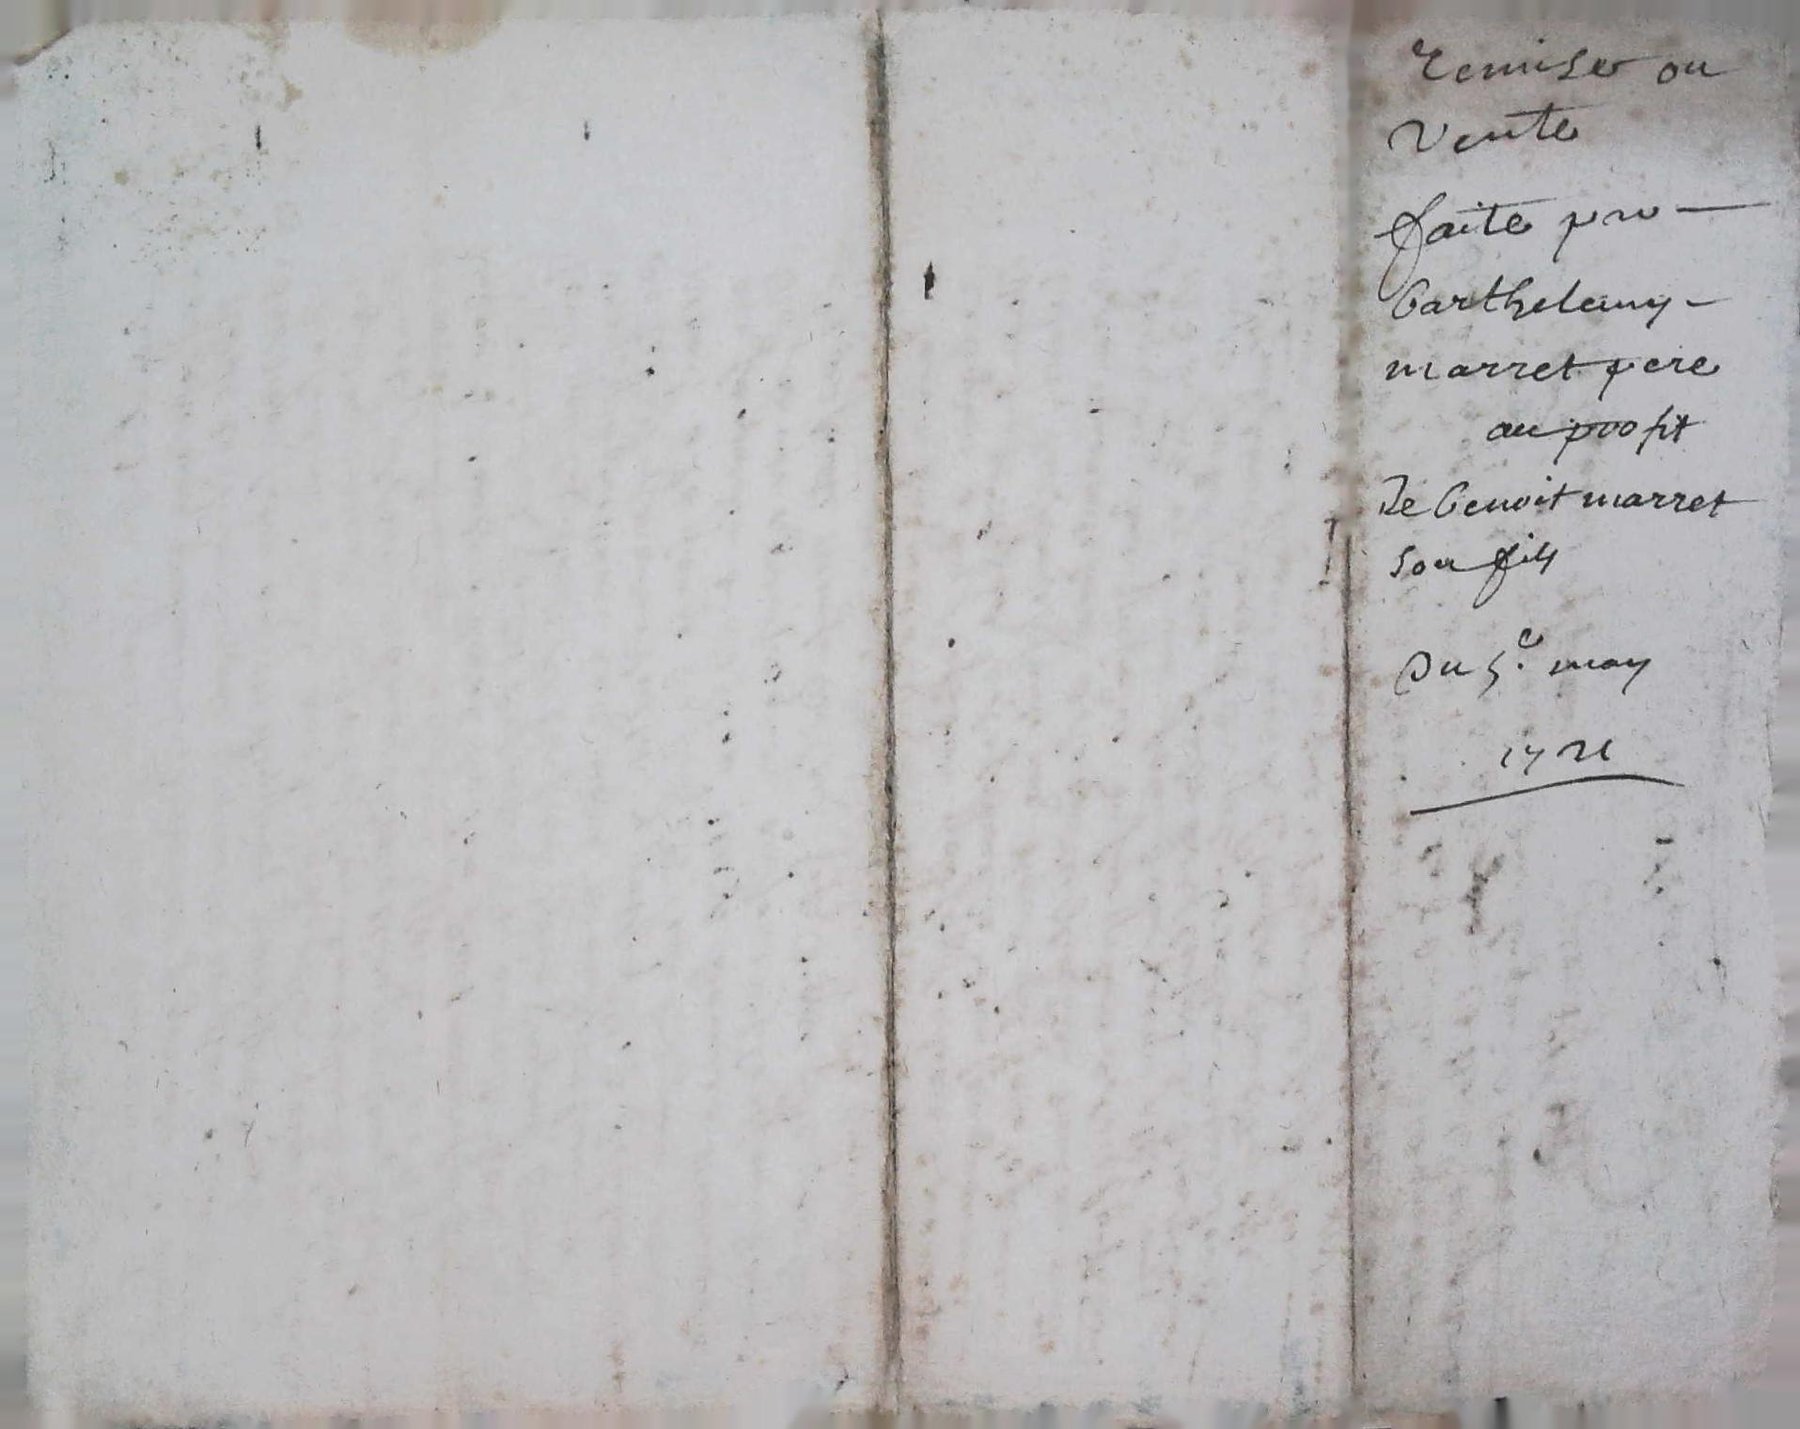 Remise ou
Vente
faite par
barthelemy
marret pere
au profit
De benoit marret
son fils
Du 5e. may
1721